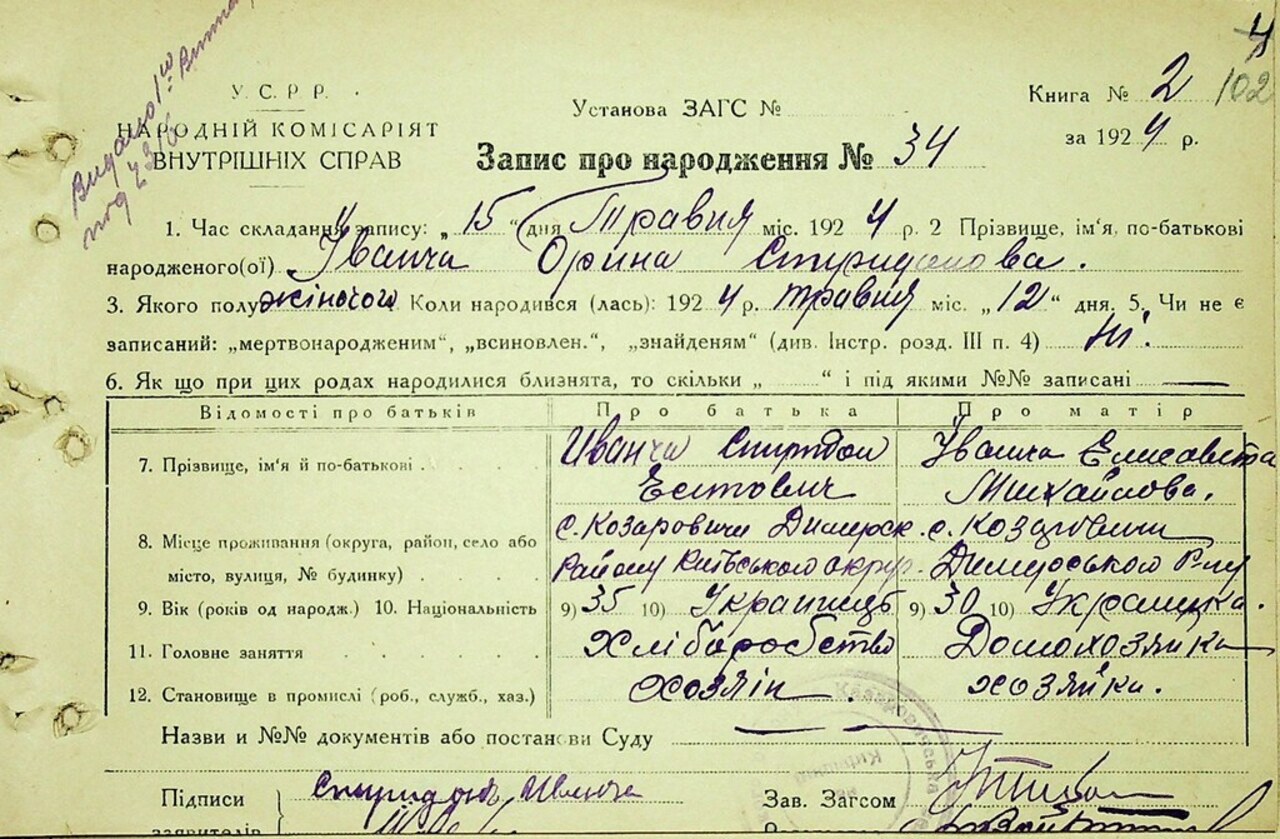 4
102
Видано 1ю
под
У. С. Р. Р.
НАРОДНІЙ КОМІСАРІЯТ
ВНУТРІШНІХ СПРАВ
Установа ЗАГС №
Книга № 2
за 1924 р.
Запис про народження № 34
1. Час складання запису: „15“ дня Травня міс. 1924 р. 2 Прізвище, ім'я, по-батькові
народженого(ої) Іванча Орина Спиридонова.
3. Якого полу жіночого Коли народився (лась): 1924 р. травня міс. „12“ дня. 5. Чи не є
записаний: „мертвонародженим“, „всиновлен.“, „знайденям“ (див. Інстр. розд. III п. 4) Ні.
6. Як що при цих родах народилися близнята, то скільки „ “ і під якими №№ записані
Відомості про батьків Про батька Про матір
7. Прізвище, ім'я й по-батькові Иванча Спиридон Іванча Елисавета
Михайлова.
8. Місце проживання (округа, район, село або с. Козаровичи Димерск с. Козаровичи
місто, вулиця, № будинку) Району Київського округ. Димерського Р-ну
9. Вік (років од народж.) 10. Національність 9) 35 10) Украинець 9) 30 10) Украинка.
11. Головне заняття Хліборобство Домохозяйка
12. Становище в промислі (роб., служб., хаз.) Хозяін хозяйка.
Назви и №№ документів або постанови Суду
Підписи Спиридон Иванча Зав. Загсом
заявителів